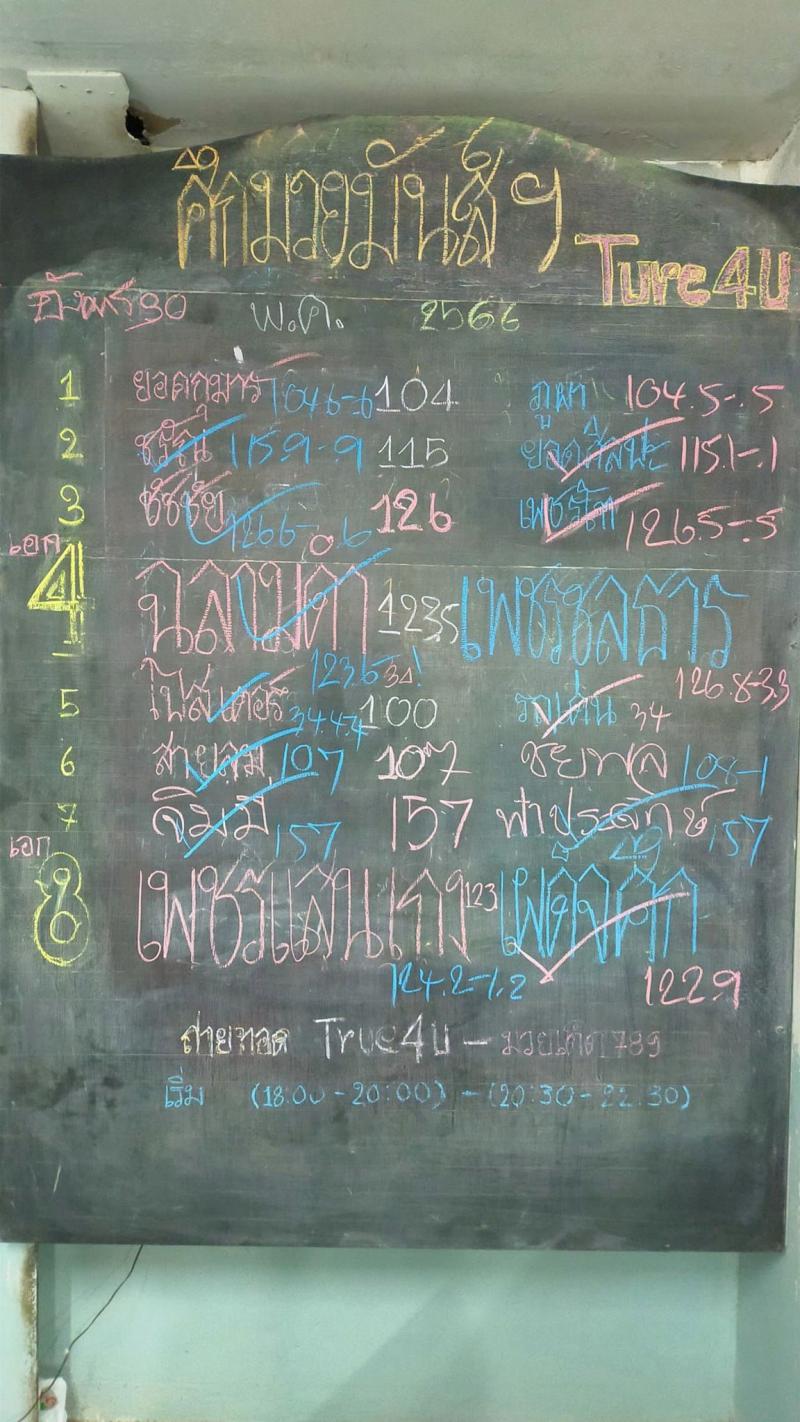 ศึกมวยมันส์ ฯ
Ture4U
อังคาร 30 พ.ค. 2566
1 ยอดกุมาร 104.6-.6 104 ภูผา 104.5-.5
2 115.9-.9 115 ยอดศิลปะ 115.1-.1
3 ชัชชัย 126.6-.6 126 126.5-.5
เอก
4 ฉลามดำ 123.5 เพชรชลธาร
123.5 126.8-3.3
5 100 รถเด่น 34
6 สายลม 107 107 ชัยพล 108-1
7 จิมมี่ 157 157 ฟ้าประสิทธ์ 157
เอก
8 เพชรแสนกาง 123 เผด็จศึก
124.2-1.2 122.9
ถ่ายทอด True4U - มวยเด็ด 789
เริ่ม (18:00 - 20:00) - (20:30 - 22:30)